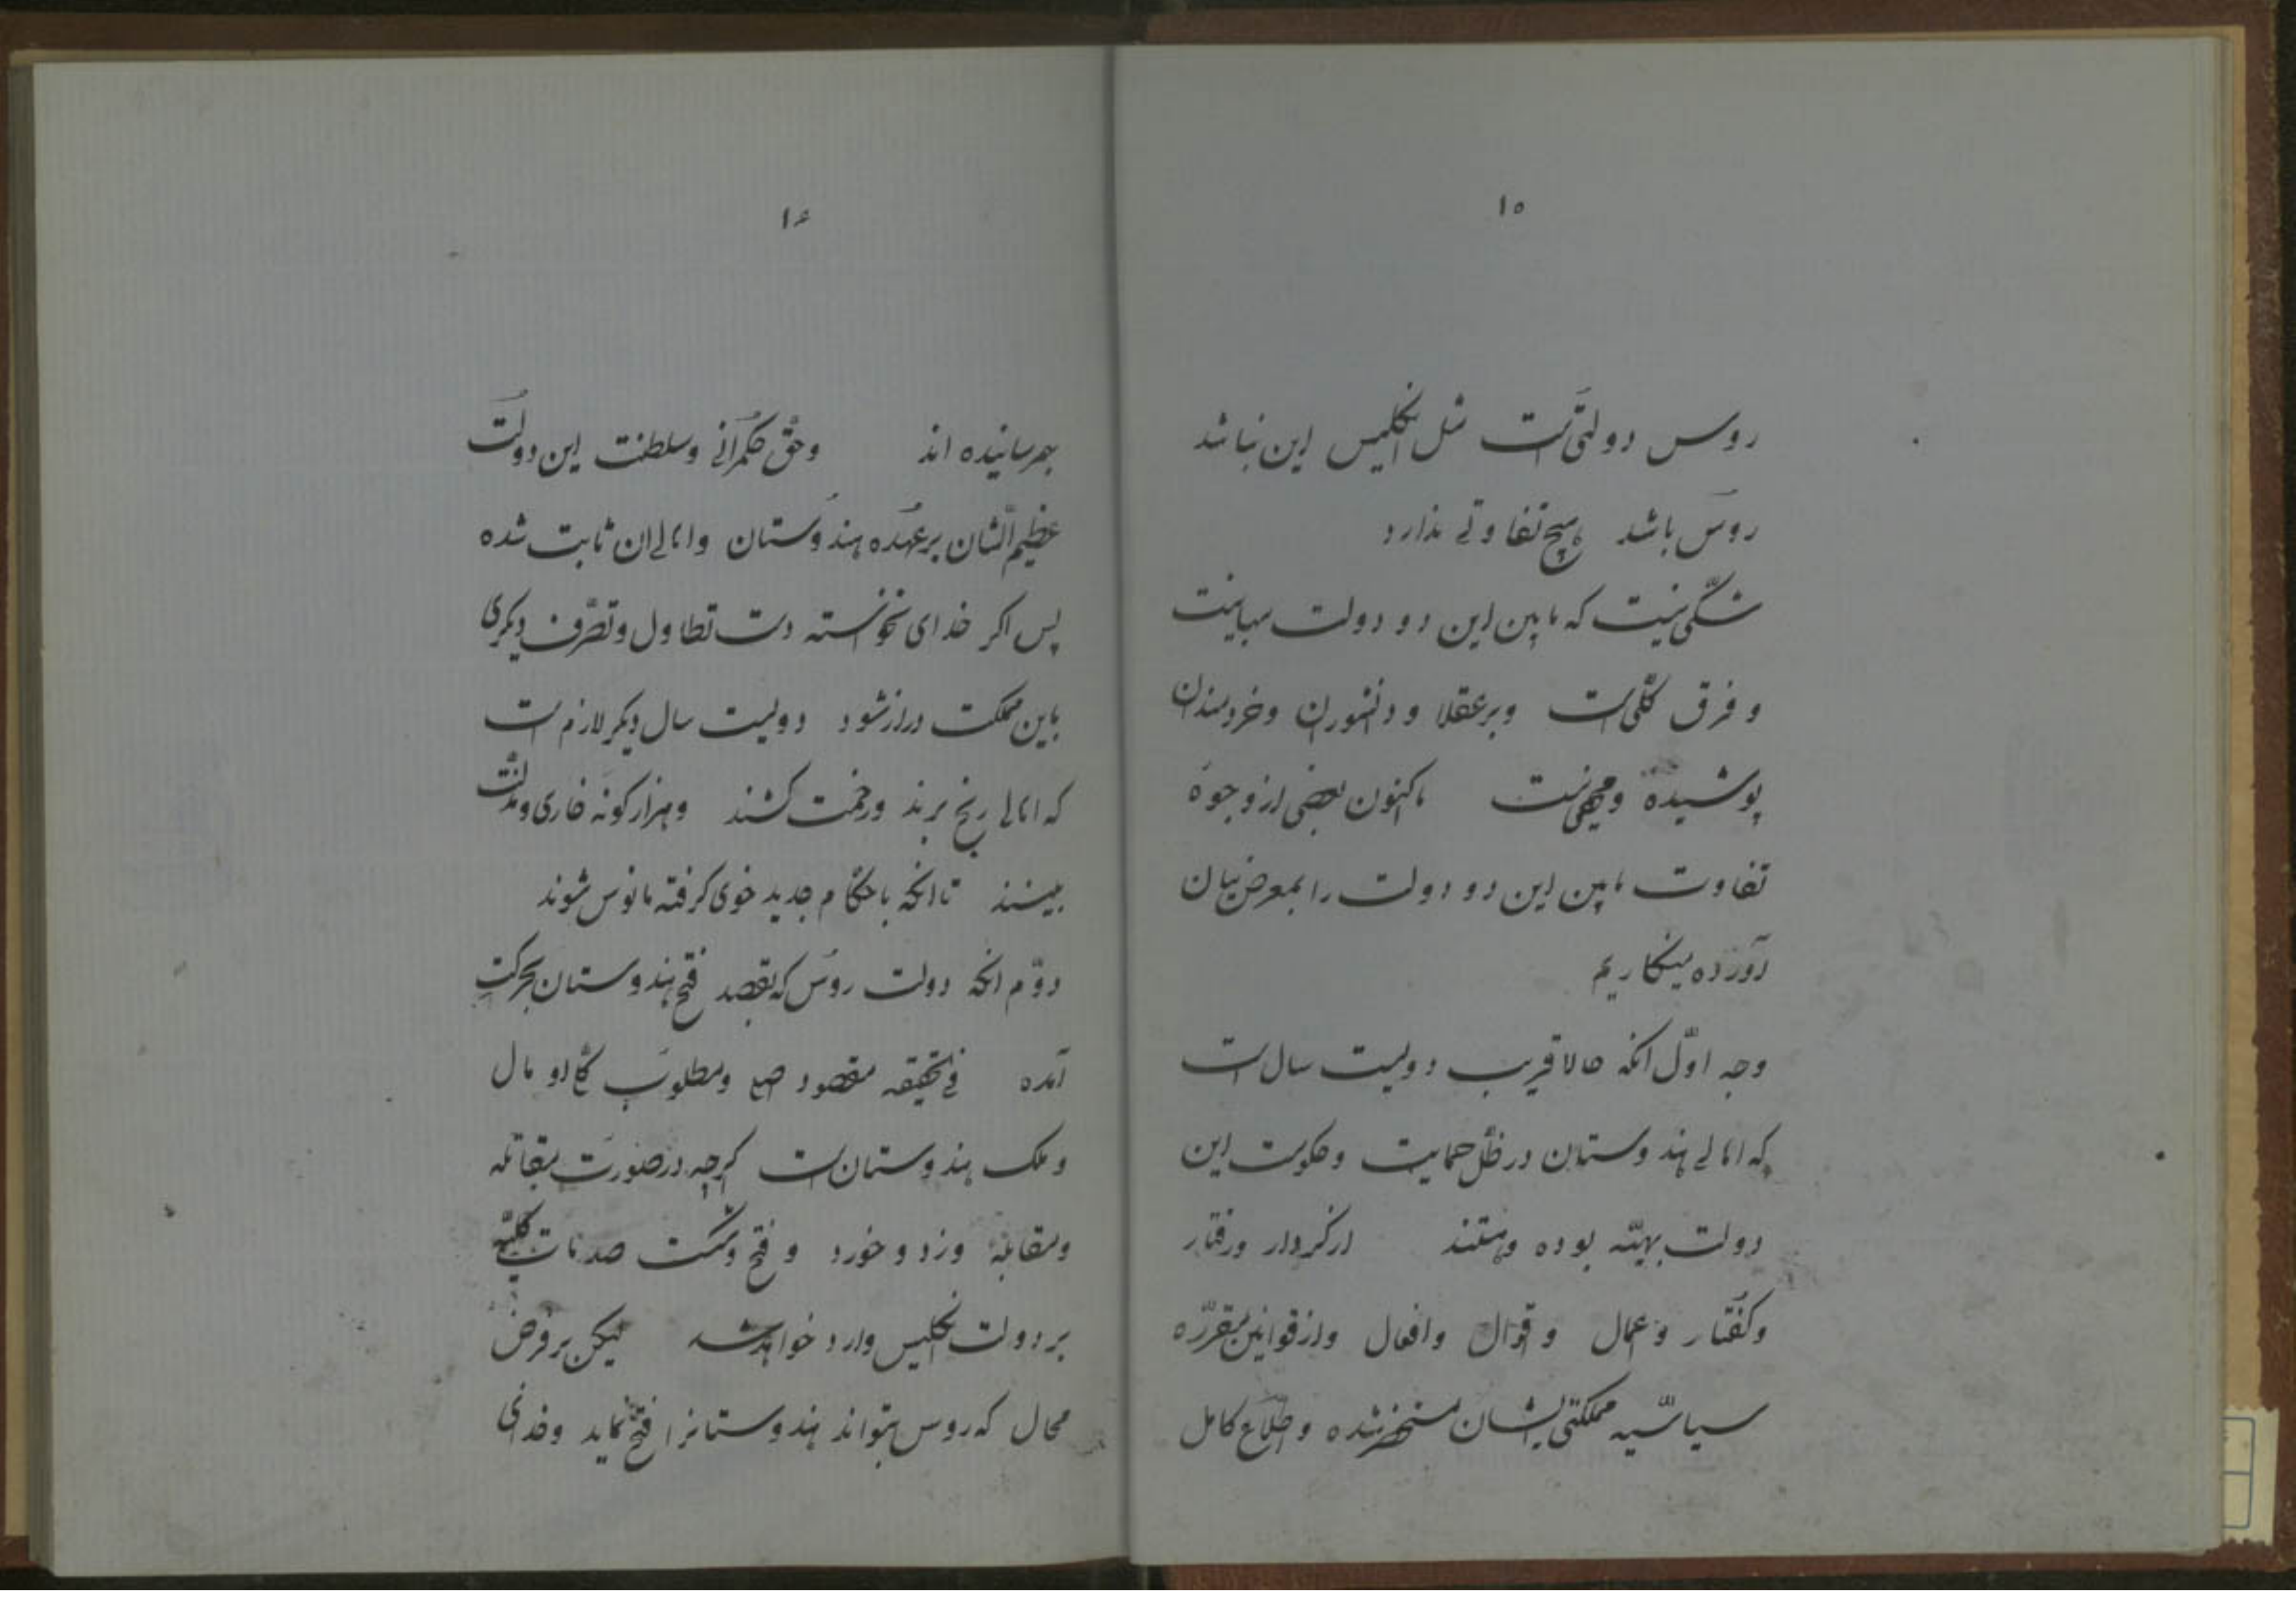 ۱۵
روس دولتی است مثل انگلیس این نباشد
روس باشد هیچ تفاوتی ندارد
شکی نیست که مابین این دو دولت مباینت
و فرق کلی است و بر عقلا و دانشوران و خردمندان
پوشیده و مخفی نیست ما کنون بعضی از وجوه
تفاوت مابین این دو دولت را بمعرض بیان
آورده مینگاریم
وجه اوّل آنکه حالا قریب دویست سال است
که اهالی هندوستان در ظلّ حمایت و حکومت این
دولت بهیّه بوده و هستند از کردار و رفتار
و گفتار و اعمال و اقوال و افعال و از قوانین مقرّره
سیاسیّه مملکتی ایشان مستحضر شده و اطّلاع کامل
۱۶
بهمرسانیده اند و حقّ حکمرانی و سلطنت این دولت
عظیم الشّان بر عهده هندوستان و اهالی ان ثابت شده
پس اگر خدای نخواسته دست تطاول و تصرّف دیگری
باین مملکت دراز شود دویست سال دیگر لازم است
که اهالی رنج برند و زحمت کشند و هزار گونه خاری و مذلّت
ببینند تا انکه باحکام جدید خوی گرفته مانوس شوند
دوّم انکه دولت روس که بقصد فتح هندوستان بحرکت
آمده فی الحقیقه مقصود اصلی و مطلوب کلی او مال
و ملک هندوستان است اگرچه در صورت مقاتله
و مقابله و زد و خورد و فتح و شکست صدمات کلیّه
بر دولت انگلیس وارد خواهد شد لیکن بر فرض
محال که روس بتواند هندوستانرا فتح نماید و خدای